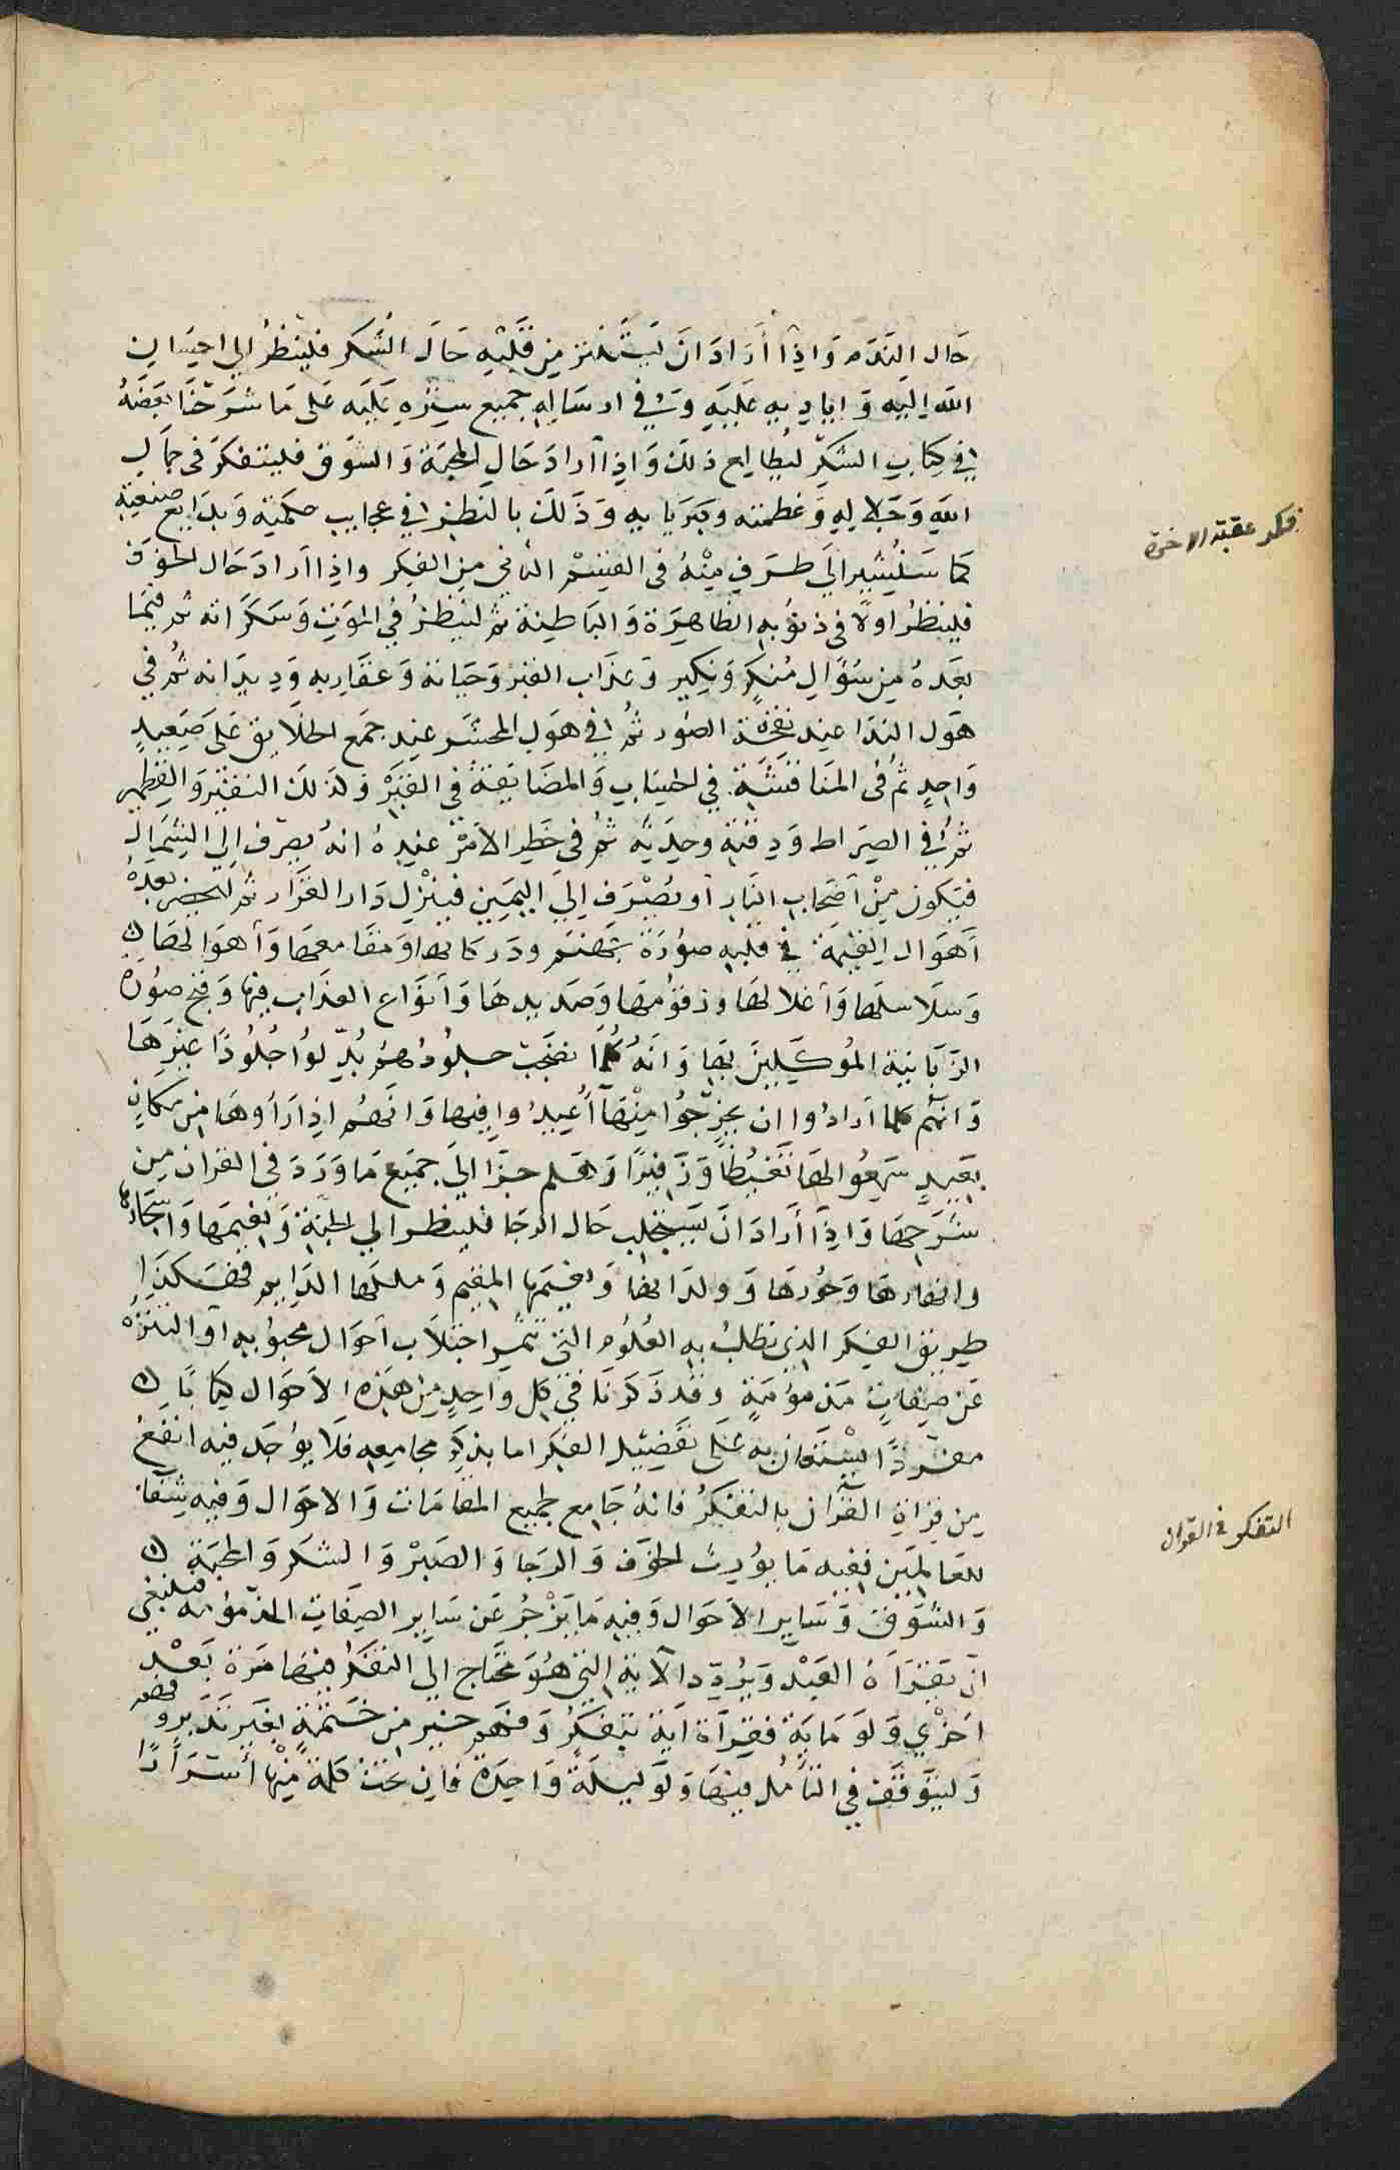 حَال النَدَم وَاذِا أرَادَ انَ يَستَشعر مِن قَلبِه حَالَ الشُكر فلينظرُ الي احِسَانِ
الله اليه وَاياديهِ عَليَهِ وَفي ارسَالِه جَميع سِترِهِ عَليَه عَلى مَا شرَحنَا بَعضَهُ
في كِتَابِ الشكر ليُطالِع ذلك وَاذِا أرادَ حَال المحبَة وَالشوَق فليتفكرَ في جَمَالِ
الله وَجَلالِهِ وَعَظمته وكبريَايهِ وَذَلك بالنظر في عجايب حكمتِه وَبَدَايع صنعتِهِ
كمَا سَنُشير الَي طرَفٍ مِنهُ في القِسْم الثَاني مِن الفِكر واذِا ارادَ حَال الخوَف
فلينظرُ اولًا في ذنوُبهِ الظَاهِرَة وَالبَاطِنة ثم لينَظرُ في الموَتِ وَسَكَرَاته ثم فيمَا
بَعدَهُ مِن سُؤَال مُنكَرٍ وَنكِير وَعذَاب القبْر وَحَياته وَعقاربه وَديدَانه ثُم في
هَول الندَا عِند نفخَة الصُور ثُم في هَول المحشَر عِند جَمَع الخلايق عَلَى صَعِيدٍ
وَاحِدٍ ثُم فُى المنَاقشَة في الحِسَابِ وَالمضَايَقة في القبَر وَكذَلك النفيْر وَالقِطمير
ثُم في الصِرَاط وَدِقتِه وحِدتِه ثُم في خَطر الامْر عِندهُ انهُ يصرف الِى الشِمَال
فيَكون مِنْ أصَحَاب النَارِ أو يُصْرَف اِلي اليَمَين فينْزل دَار القَرَار ثُم ليحضر بَعدهُ
أهَوَال القيمَة في قلبِه صُورَة جَهنَم ودَركاتها وَمقامعهَا وَأهوَالهَا
وَسَلاسلهَا وَأغلالهَا وزقومهَا وَصَديدهَا وَأنوَاع العذَاب فِيهَا وَقبح صُورَة
الزَبَانية المُوكَلِينَ بهَا وَانهُ كُلما نضجَت جلُودُهُم بُدّلوُا جُلُودًا غيَرهَا
وَانهُم كلما أرَادُوا ان يخرجُوا مِنْهَا أُعِيدُوا فِيهَا وَانهُم اذِا رَأوهَا مِن مَكانٍ
بَعيدٍ سَمِعُوا لهَا تَغَيُظًا وَزَفيرًا وَهَلم جَرَّا الَي جَميَع مَا وَرَدَ في القران مِن
شرَحهَا وَاذِا أرَادَ انَ يَسَتجلب حَال الرجَا فلينظر الي الجنّةِ وَنعيمهَا وَاشجَارهَا
وانهَارهَا وَحُورهَا وَولدَانهَا وَنعيمَهَا المقيم وَملكهَا الدَايم فهَكذَا
طِريَق الفِكر الذِي تطلبُ بهِ العُلُوم التي تثمُر اجتلاَب أحوَال محبوُبهِ أو التنزهُ
عَن صِفاتٍ مَذمُومَةٍ وقدْ ذَكرَنَا في كل وَاحِدٍ مِن هَذه الاحَوَال كتابًا
مفردًا يسْتعَان بهِ عَلَى تفَصِيل الفِكر اما بذكر مجَامِعِه فَلا يوُجَد فيه انفعُ
مِن قراةِ القُرآن بالتفَكر فانهُ جَامِع لجميع المقامَات وَالاحوَال وَفيه شِفَا
للعَالمِين ففِيه مَا يوُرِث الخوَف وَالرَجا وَالصَبْر وَالشكر وَالمحبَة
وَالشوَق وَسَاير الاحَوَال وَفيه مَا يَزجُر عَن سَايِر الصِفَات المذمُومَة فينبغي
انّ يَقرَأهُ العَبْد وَيُرَدّد الآية التي هُوَ محُتَاج الَي التفَكر فيهَا مَرَة بَعْد
اخَرْي وَلوَ مَايَة فقرآة آيَة بتفكر وَفهم خير مِن خَتمَةٍ بغير تَدبر وَفهم
وَليتوَقف في التَأمُل فِيهَا وَلَو ليلَةً وَاحِدَة فاِن تحت كل كلمة مِنْهَا أسرَارًا
فكر عقبة الاخرة
التفكر في القران